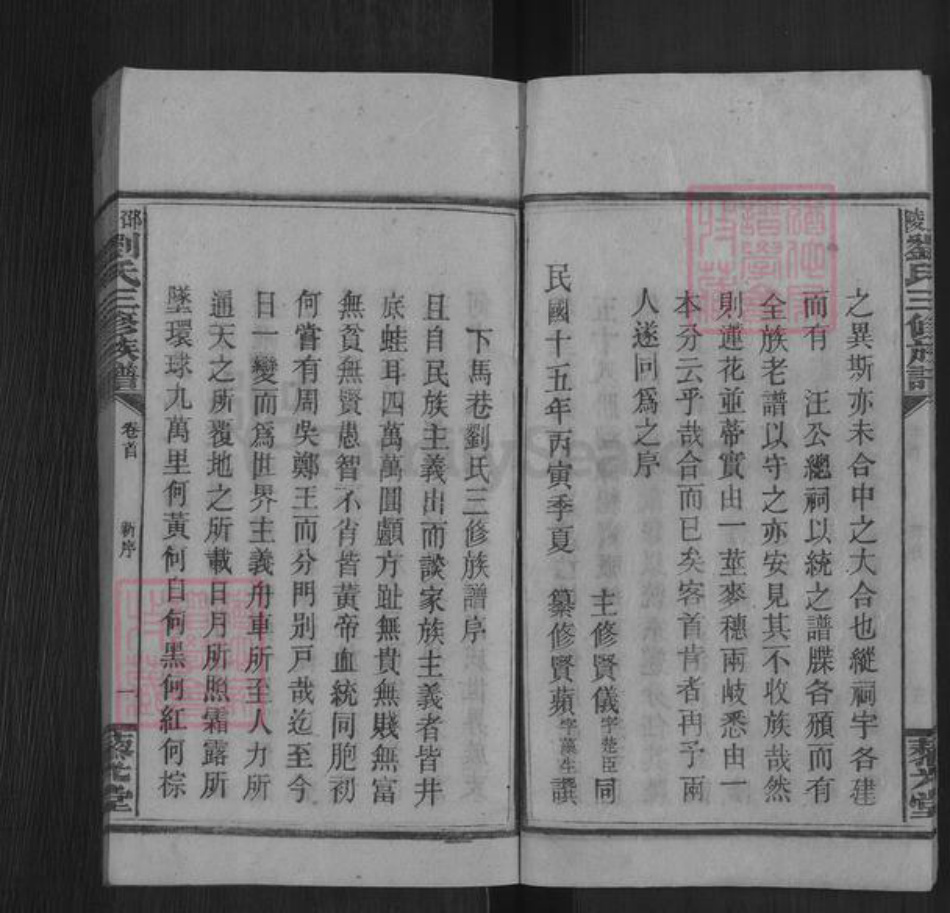 陵劉氏三修族譜
之異斯亦未合中之大合也縱祠宇各建
而有 汪公總祠以統之譜牒各殞而有
全族老譜以守之亦安見其不收族哉然
則蓮花並蒂實由一莖麥穗兩岐悉由一
本分云乎哉合而已矣客首肯者再予兩
人遂同爲之序
主修賢儀字楚臣同
民國十五年丙寅季夏 纂修賢蘋字藻生譔
下馬巷劉氏三修族譜序
且自民族主義出而談家族主義者皆井
底蛙耳四萬萬圓顱方趾無貴無賤無富
無貧無賢愚智不肖皆黃帝血統同胞初
何嘗有周吳鄭王而分門別戶哉迄至今
日一變而爲世界主義舟車所至人力所
通天之所覆地之所載日月所照霜露所
墜環球九萬里何黃何白何黑何紅何棕
邵劉氏三修族譜
卷首
新序
一